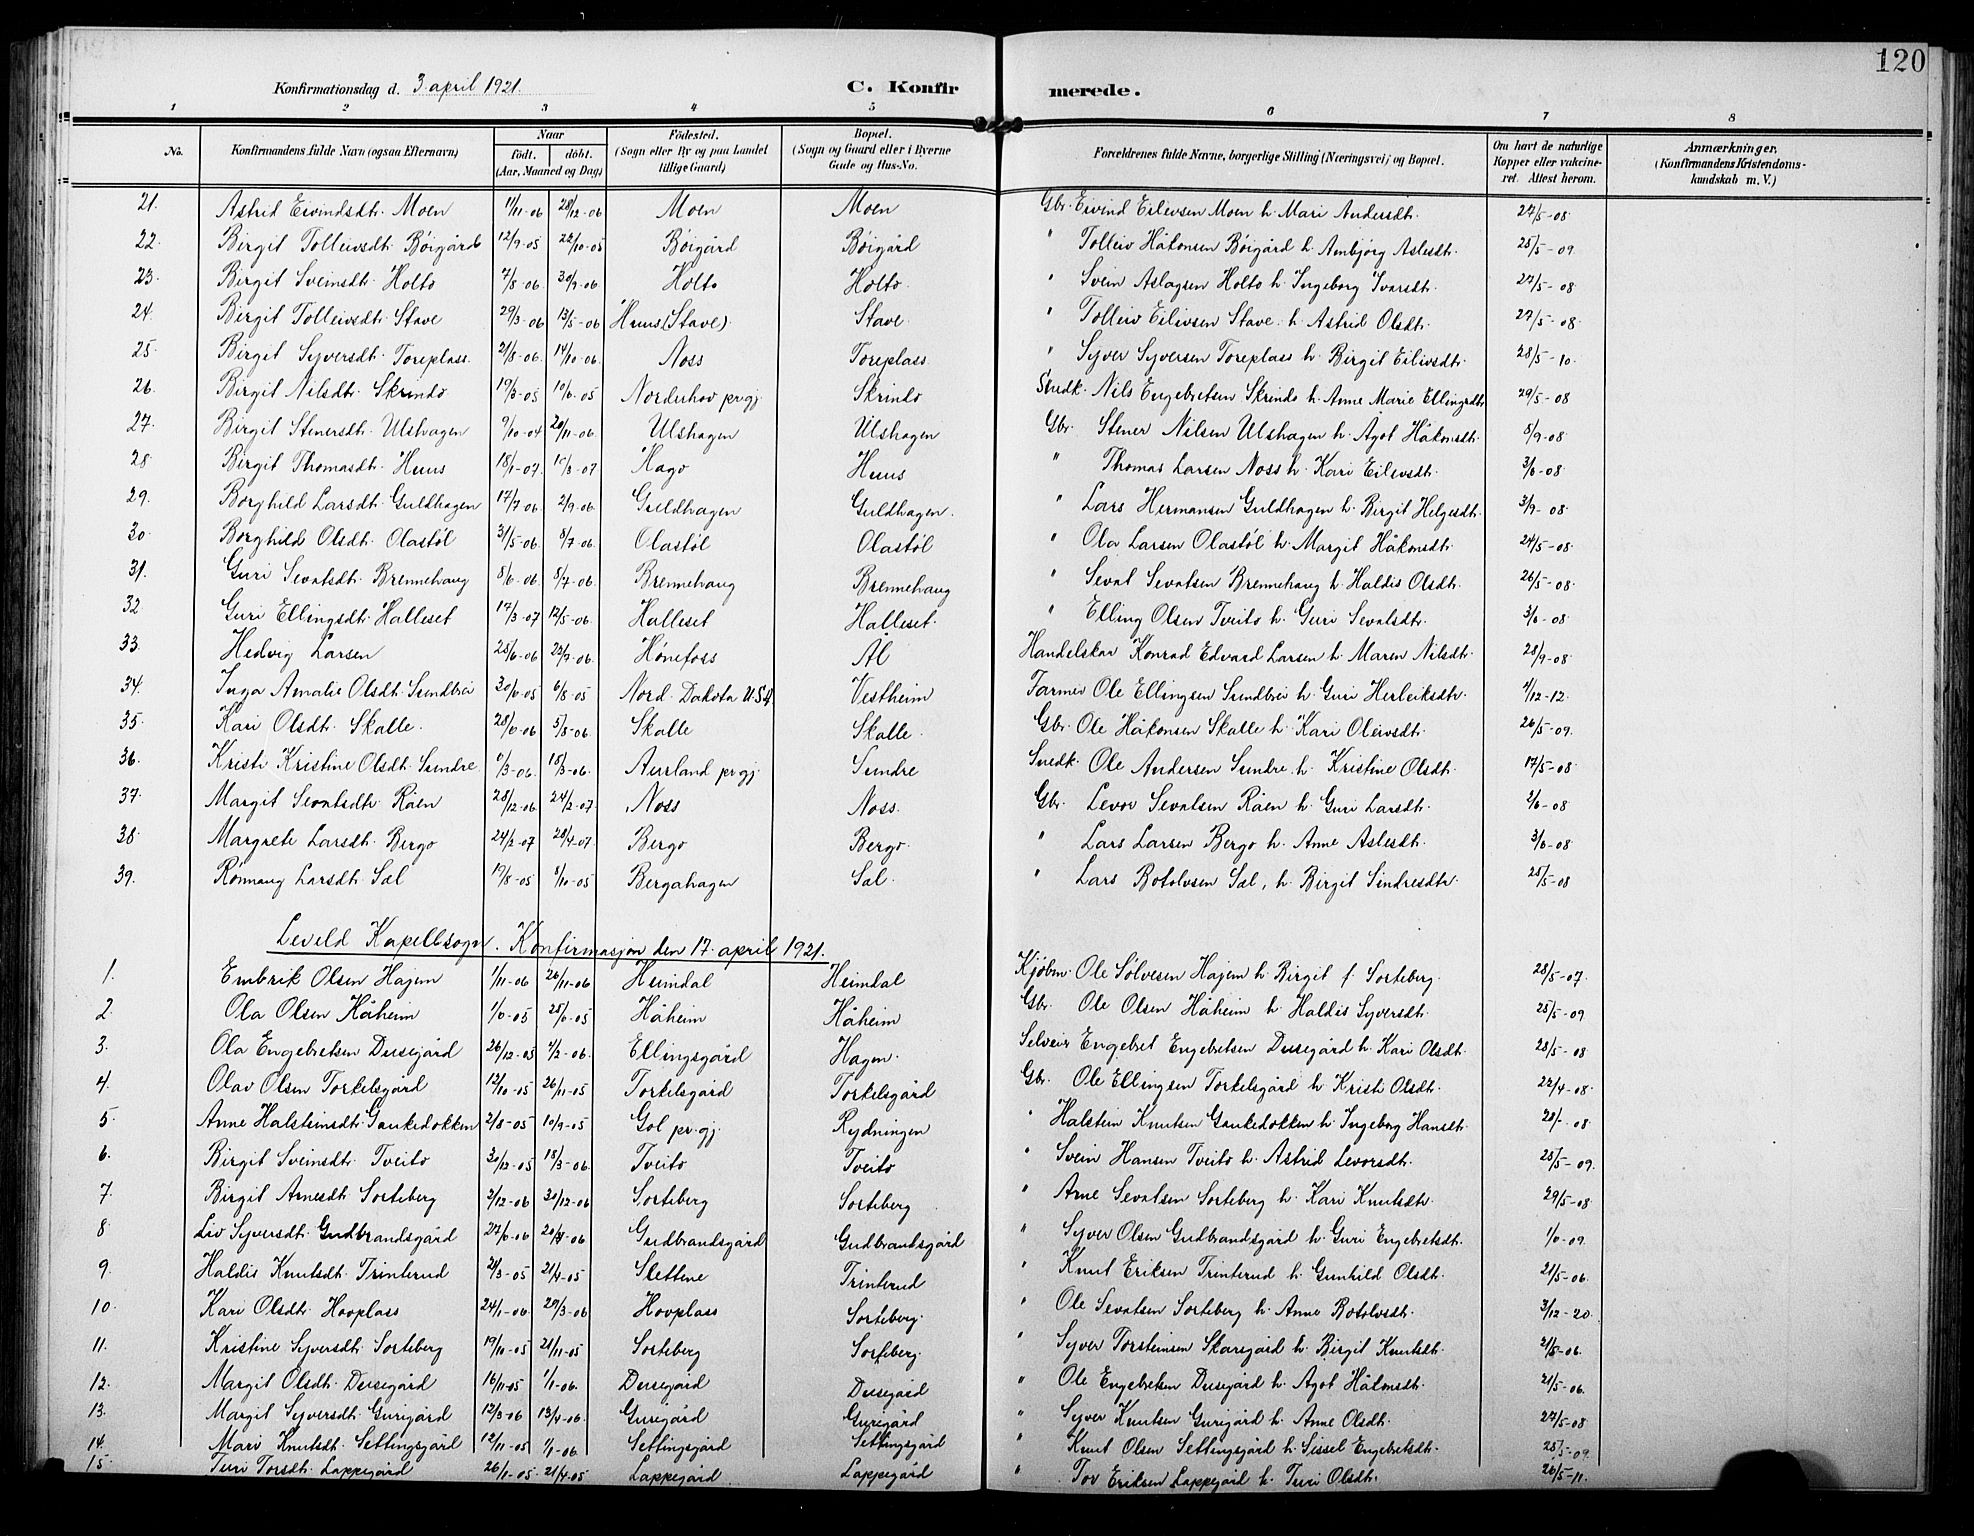 120
Konfirmationsdag d. 3 april 1921. C. Konfirmerede.
1 2 3 4 5 6 7 8
No. Konfirmandens fulde Navn (ogsaa Efternavn) Naar födt. döbt. (Aar, Maaned og Dag) Födested. (Sogn eller By og paa Landet tillige Gaard) Bopæl. (Sogn og Gaard eller i Byerne Gade og Hus-No. Forældrenes fulde Navne, borgerlige Stilling (Næringsvei) og Bopæl. Om havt de naturlige Kopper eller vakcineret. Attest herom. Anmærkninger, (Konfirmandens Kristendomskundskab m. V.)
21. Astrid Eivindsdtr. Moen 11/11-06 28/12-06 Moen Moen Gbr. Eivind Eilevsen Moen h. Mari Andersdtr. 27/5-08
22. Birgit Tolleivsdtr. Böigård 12/9-05 22/10-05 Böigård Böigård " Tolleiv Håkonsen Böigård h. Aslesdtr. 25/5-09
23. Birgit Sveinsdtr. Holto 7/8-06 30/9-06 Holto Holto " Svein Aslagsen Holto h. Ingeborg Ivarsdtr. 27/5-08
24. Birgit Tolleivsdtr. Stave 29/3-06 13/5-06 Huus (Stave) Stave " Tolleiv Eilivsen Stave h. Astrid Olsdtr. 27/5-08
25. Birgit Syversdtr. Toreplass 21/8-06 14/10-06 Noss Toreplass " Syver Syversen Toreplass h. Birgit Eilivsdtr. 28/5-10
26. Birgit Nilsdtr. Skrindo 19/3-05 10/6-05 Norderhov pr.gj. Skrindo Snedk. Nils Engebretsen Skrindo h. Anne Marie Ellingsdtr. 29/5-08
27. Birgit Stenersdtr. Ulshagen 9/10-04 20/11-06 Ulshagen Ulshagen Gbr. Stener Nilsen Ulshagen h. Agot Håkonsdtr. 8/9-08
28 Birgit Thomasdtr. Huus 18/1-07 Hago Huus " Thomas Larsen Noss h. Kari Eilevsdtr. 3/6-08
29. Borghild Larsdtr. Guldhagen 17/7-06 2/9-06 Guldhagen Guldhagen. " Lars Hermansen Guldhagen h. Birgit Helgesdtr. 3/9-08
30. Borghild Olsdtr. Olastöl 31/5-06 8/7-06 Olastöl Olastöl " Ola Larsen Olastöl h. Margit Håkonsdtr. 24/5-08
31. Guri Sevatsdtr. Brennehaug 8/6-06 8/7-06 Brennehaug Brennehaug " Sevat Sevatsen Brennehaug h. Haldis Olsdtr. 26/5-08
32 Guri Ellingsdtr. Halleset 17/3-07 12/5-06 Halleset Halleset " Elling Olsen Tveito h. Guri Sevatsdtr. 3/6-08
33. Hedvig Larsen 25/6-06 23/9-06 Hönefoss Ål Handelskar Konrad Edvard Larsen h. Maren Nilsdtr. 28/9-08
34. Inga Amalie Olsdtr. Sundbrei 30/6-05 6/8-05 Nord. Dakota U.S.A. Vestheim Farmer Ole Ellingsen Sundbrei h. Guri Herleiksdtr. 4/12-12
35. Kari Olsdtr. Skalle. 28/6-06 5/8-06 Skalle Skalle. Gbr. Ole Håkonsen Skalle h. Kari Oleivsdtr. 26/5-09
36. Kristi Kristine Olsdtr. Sundre 18/3-06 Aurland pr.gj. Sundre Snedk. Ole Andersen Sundre h. Kristine Olsdtr. 17/5-08
37. Margit Sevatsdtr. Råen 28/12-06 24/2-07 Noss Noss. Gbr. Levor Sevatsen Råen h. Guri Larsdtr. 2/6-08
38. Margrete Larsdtr. Bergo 24/2-07 28/4-07 Bergo Bergo. " Lars Larsen Bergo h. Anne Aslesdtr. 3/6-08
39. Rönnaug Larsdtr. Sal 19/8-05 8/10-05 Bergahagen Sal. " Lars Botolvsen Sal, h. Birgit Sindresdtr. 25/5-08
Leveld Kapellsogn. Konfirmasjon den 17. april 1921.
1. Embrik Olsen Hajem 1/11-06 26/11-06 Heimdal Heimdal Kjöbm. Ole Sölvesen Hajem h. Birgit f. Sorteberg. 28/5-07
2 Ola Olsen Håheim 1/6-05 25/6-05 Håheim Håheim Gbr. Ole Olsen Håheim h. Haldis Syversdtr. 25/5-09
3. Ola Engebretsen Dusegård 26/12-05 4/2-06 Ellingsgård Hagen. Selveier Engebret Engebretsen Dusegård h. Kari Olsdtr. 28/5-08
4. Olav Olsen Torkelsgård 12/10-05 26/11-05 Torkelsgård Torkelsgård Gbr. Ole Ellingsen Torkelsgård h. Kristi Olsdtr. 22/4-08
5. Anne Halsteinsdtr. Gaukedokken 2/8-05 10/9-05 Gol pr.gj. Rydningen " Halstein Knutsen Gaukedokken h. Ingeborg Hansdtr. 28/-08
6. Birgit Sveinsdtr. Tveito 30/12-05 18/3-06 Tveito Tveito " Svein Hansen Tveito h. Astrid Levorsdtr. 25/5-09.
7. Birgit Arnesdtr. Sorteberg 2/12-06 30/12-06 Sorteberg Sorteberg " Arne Sevatsen Sorteberg h. Kari Knutsdtr. 29/5-08
8 Liv Syversdtr. Gudbrandsgård 27/6-06 Gudbrandsgård Gudbrandsgård " Syver Olsen Gudbrandsgård h. Guri Engebretsdtr. 1/6-09.
9. Haldis Knutsdtr. Trinterud 21/3-05 21/4-05 Slettene Trinterud " Knut Eriksen Trinterud h. Gunhild Olsdtr. 21/5-06.
10. Kari Olsdtr. Hovplass 24/1-06 29/3-06 Hovplass Sorteberg. " Ole Sevatsen Sorteberg h. Anne Botolvsdtr. 3/12-20.
11. Kristine Syversdtr. Sorteberg 19/10-05 21/11-05 Sorteberg Sorteberg. " Syver Torsteinsen Skaregård h. Birgit Knutsdtr. 21/5-06.
12. Margit Olsdtr. Dusegård 16/11-05 1/1-06. Dusegård Dusegård " Ole Engebretsen Dusegård h. Agot Håkonsdtr. 21/5-06.
13. Margit Syversdtr. Gurigård 12/3-06 13/4-06 Gurigård Gurigård " Syver Knutsen Gurigård h. Anne Olsdtr. 27/5-08
14. Mari Knutsdtr. Settingsgård 12/11-05 1/1-06. Settingsgård Settingsgård " Knut Olsen Settingsgård h. Sissel Engebretsdtr. 25/5-09.
15. Turi Torsdtr. Lappegård 26/1-05 21/4-05 Lappegård Lappegård " Tov Eriksen Lappegård h. Turi Olsdtr. 26/5-11.